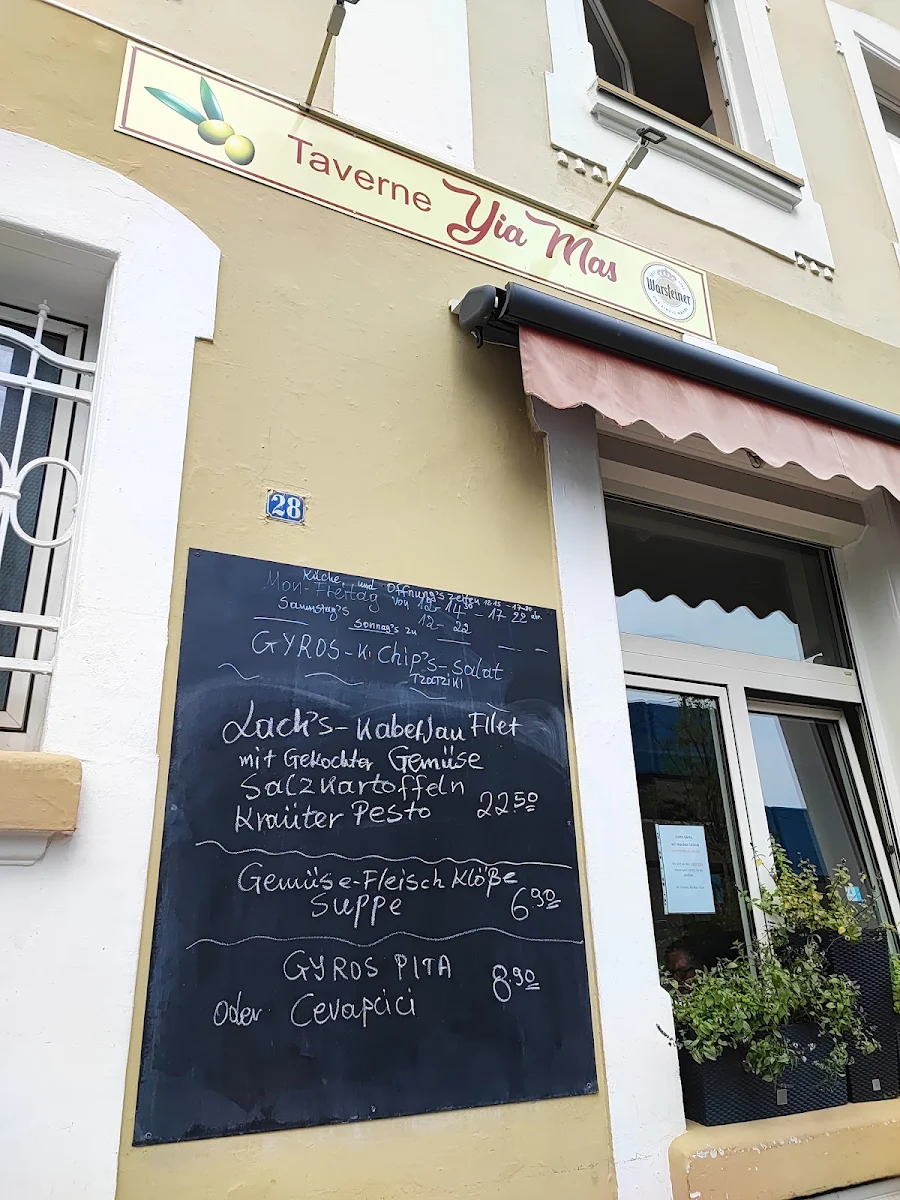 Taverne Yia Mas
Warsteiner
28
Küche und Öffnung's zeiten
Mon-Freitag von 12-14³⁰ - 17-22 uhr
Samstag's
12-22
Sonnag's zu
GYROS-K. Chip's-Salat
TZATZIKI
Lach's-Kabeljau Filet
mit Gekochter Gemüse
Salzkartoffeln
Kräuter Pesto 22.50
Gemüse-Fleisch Klöße
Suppe 6.90
GYROS PITA 8.90
Oder Cevapcici